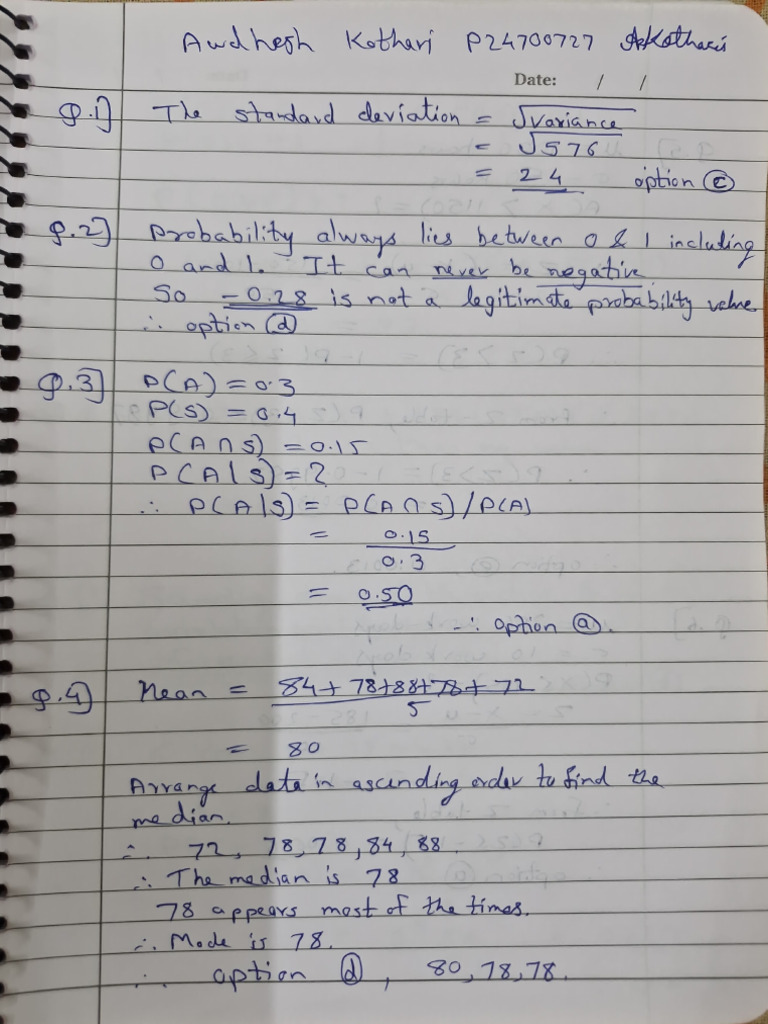 Awdhesh Kothari P24700727 AKothari
Date: / /
Q.1] The standard deviation = √variance
= √576
= 24 option ⓒ
Q.2] Probability always lies between 0 & 1 including
0 and 1. It can never be negative.
So -0.28 is not a legitimate probability value
∴ option ⓓ
Q.3] P(A) = 0.3
P(S) = 0.4
P(A ∩ S) = 0.15
P(A|S) = ?
∴ P(A|S) = P(A ∩ S) / P(A)
= 0.15
0.3
= 0.50
∴ option ⓐ.
Q.4] Mean = 84 + 78+88+78 + 72
5
= 80
Arrange data in ascending order to find the
median.
∴ 72, 78, 78, 84, 88
∴ The median is 78
78 appears most of the times.
∴ Mode is 78.
∴ option ⓓ, 80, 78, 78.